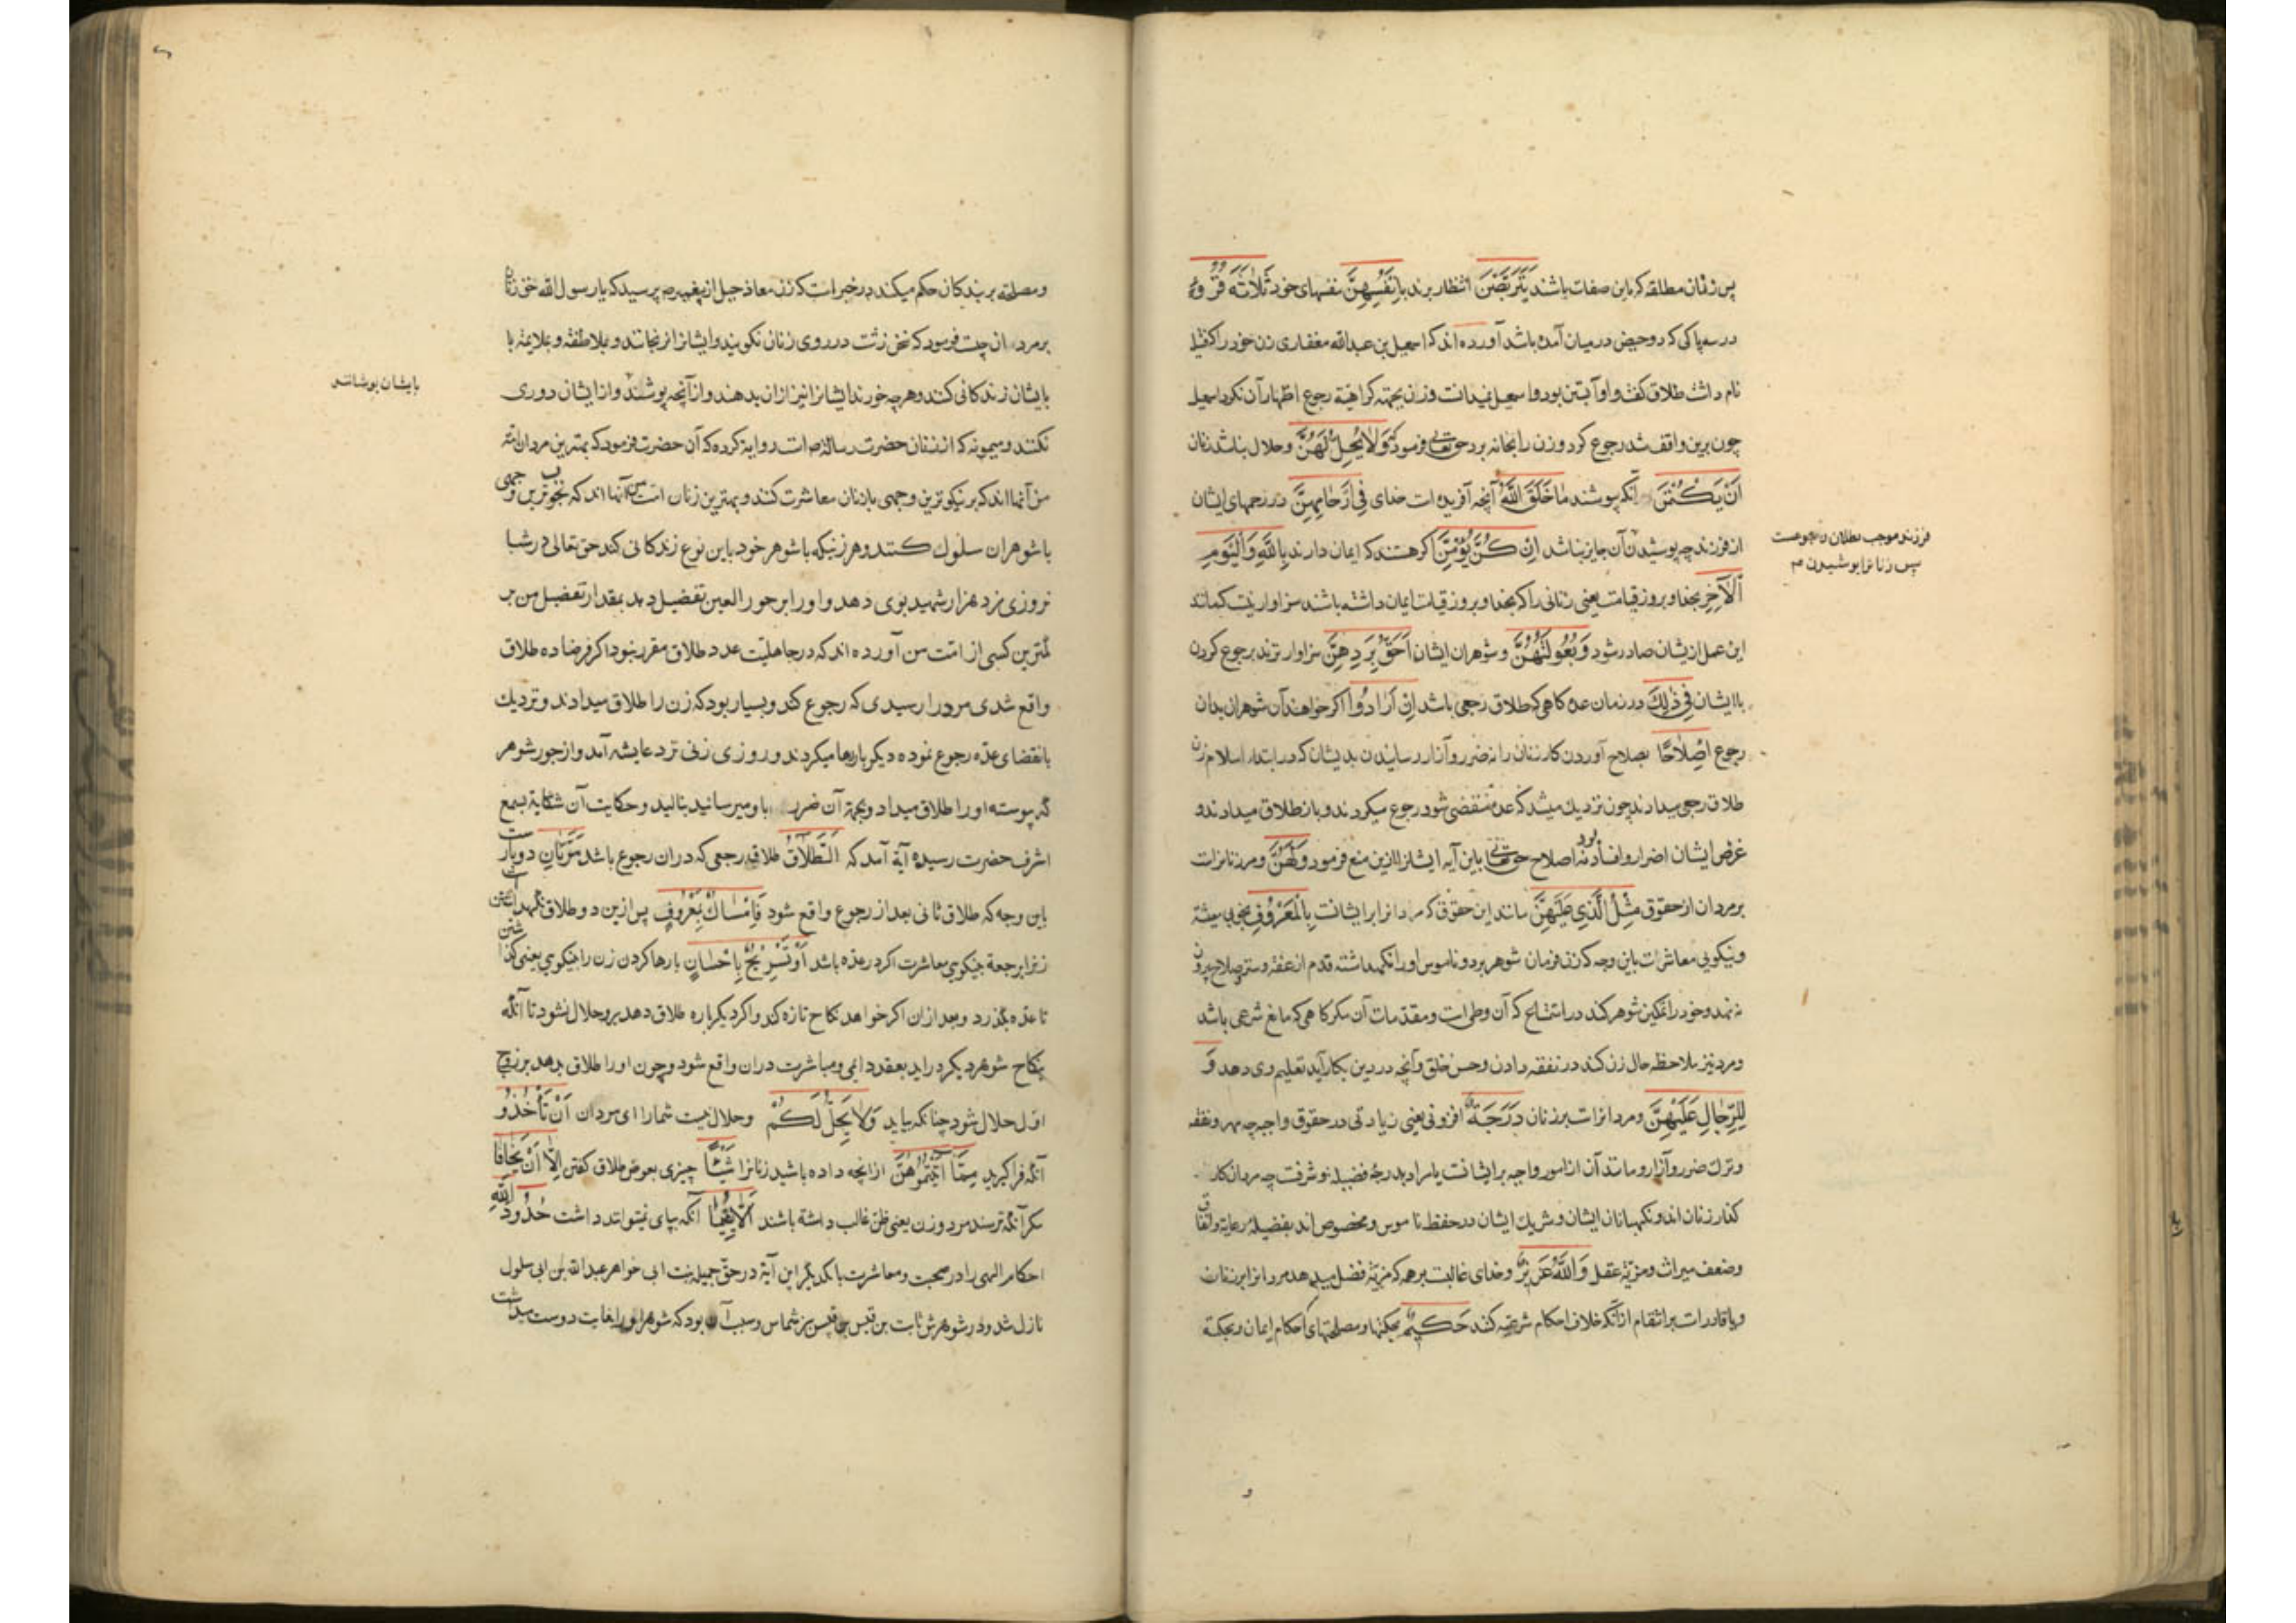 پس زنان مطلقه که باین صفات باشند یَتَرَبَّصْنَ انتظار برند بِاَنْفُسِهِنَّ بنفسهای خود ثَلَاثَةَ قُرُوءٍ
در سه پاکی که دو حیض در میان آمده باشد آورده اند که اسمعیل بن عبدالله غفاری زن خود را که قتیله
نام داشت طلاق گفت و او آبستن بود و اسمعیل نمیدانست و زن بجهة کراهیة رجوع اظهار آن نکرد اسمعیل
چون برین واقف شد رجوع کرد و زن را بخانه برد حق تعالی فرمود که وَلَا یَحِلُّ لَهُنَّ و حلال نباشد زنان
اَنْ یَکْتُمْنَ آنکه بپوشند مَا خَلَقَ اللّٰهُ آنچه آفریده است خدای فِی اَرْحَامِهِنَّ در رحمهای ایشان
از فرزند چه پوشیدن آن جایز نباشد اِنْ کُنَّ یُؤْمِنَّ اگر هستند که ایمان دارند بِاللّٰهِ وَالْیَوْمِ
فرزند موجب بطلان رجوعست
پس زنانرا پوشیدن
الْآخِرِ بخدا و بروز قیامت یعنی زنانی را که بخدا و بروز قیامت ایمان داشته باشند سزاوار نیست که مانند
این عمل ازیشان صادر شود وَبُعُولَتُهُنَّ و شوهران ایشان اَحَقُّ بِرَدِّهِنَّ سزاوارترند برجوع کردن
باایشان فِی ذٰلِکَ در زمان عده گاهی که طلاق رجعی باشد اِنْ اَرَادُوا اگر خواهند آن شوهران بدان
رجوع اِصْلَاحًا بصلاح آوردن کار زنان را نه ضرر و آزار رسانیدن بدیشان که در ابتداء اسلام زن
طلاق رجعی میدادند چون نزدیك میشد که عده منقضی شود رجوع میکردند و باز طلاق میدادند و
غرض ایشان اضرار و افساد بود نه اصلاح حق تعالی باین آیه ایشانرا ازین منع فرمود وَلَهُنَّ و مر زنانراست
بر مردان از حقوق مِثْلُ الَّذِی عَلَیْهِنَّ مانند این حقوق که مردانرا بر ایشانست بِالْمَعْرُوفِ بخوبی معیشة
و نیکویی معاشرت باین وجه که زن فرمان شوهر برد و ناموس او را نگهداشته قدم از عفة و ستر و صلاح بیرون
ننهد و خود را تمکین شوهر کند در استمتاع که آن وطی است و مقدمات آن مگر گاهی که مانع شرعی باشد
و مرد نیز ملاحظه حال زن کند در نفقه دادن و حسن خلق و آنچه در دین بکار آید تعلیم وی دهد وَ
لِلرِّجَالِ عَلَیْهِنَّ و مردانراست بر زنان دَرَجَةٌ افزونی یعنی زیادتی در حقوق واجبه چه مهر و نفقه
و ترك ضرر و آزار و مانند آن از امور واجبه بر ایشانست یا مراد بدرجه فضیلة و شرفست چه مردان کار
گذار زنان اند و نگهبانان ایشان و شریك ایشان در حفظ ناموس و مخصوص اند بفضیلة رعایة و انفاق
و ضعف میراث و مزیة عقل وَاللّٰهُ عَزِیزٌ و خدای غالبست بر همه که مزیة فضل میدهد مردانرا بر زنان
و یا قادر است بر انتقام از آنکه خلاف احکام شرعیه کند حَکِیمٌ بحکمتها و مصلحتهای احکام ایمان و بحکمة
و مصلحة بر بندگان حکم میکند در خبر است که زن معاذ جبل از پیغمبر ص پرسید که یا رسول الله حق زنان
بر مردان چیست فرمود که سخن زشت در روی زنان نگویند و ایشانرا نرنجانند و بملاطفة و ملایمة با
بایشان زندگانی کنند و هر چه خورند ایشانرا نیز از آن بدهند و از آنچه پوشند و از ایشان دوری
بایشان پوشانند
نکنند و میمونه که از زنان حضرت رسالة ص است روایة کرده که آن حضرت فرمود که بهترین مردان امة
من آنها اند که بر نیکوترین وجهی با زنان معاشرت کنند و بهترین زنان امت من آنها اند که بخوبترین وجهی
با شوهران سلوك کنند و هر زنی که با شوهر خود باین نوع زندگانی کند حق تعالی در شبا
نروزی مزد هزار شهید بوی دهد و او را بر حور العین تفضیل دهد بمقدار تفضیل من بر
کمترین کسی از امت من آورده اند که در جاهلیت عدد طلاق مقرر نبود اگر فرضا ده طلاق
واقع شدی مرد را رسیدی که رجوع کند و بسیار بود که زن را طلاق میدادند و نزدیك
بانقضای عده رجوع نموده دیگر بار رها میکردند و روزی زنی نزد عایشه آمد و از جور شوهر
که پیوسته او را طلاق میداد و بجهة آن ضرر باو میرسانید بنالید و حکایت آن شکایة بسمع
اشرف حضرت رسیده آیة آمد که اَلطَّلَاقُ طلاق رجعی که در آن رجوع باشد مَرَّتَانِ دو بار است
باین وجه که طلاق ثانی بعد از رجوع واقع شود فَاِمْسَاكٌ بِمَعْرُوفٍ پس ازین دو طلاق نگهداشتن است
زنرا برجعة بنیکویی معاشرت اگر در عده باشد اَوْ تَسْرِیحٌ بِاِحْسَانٍ یا رها کردن زن را بنیکویی یعنی گذاشتن
تا عده بگذرد و بعد از آن اگر خواهد نکاح تازه کند و اگر دیگر باره طلاق دهد برو حلال نشود تا آنکه
بنکاح شوهر دیگر در اید بعقد دایمی و مباشرت دران واقع شود و چون او را طلاق بدهد بر زوج
اول حلال شود چنانکه بیاید وَلَا یَحِلُّ لَکُمْ و حلال نیست شمارا ای مردان اَنْ تَأْخُذُو
آنکه فرا گیرید مِمَّا آتَیْتُمُوهُنَّ از انچه داده باشید زنانرا شَیْئًا چیزی بعوض طلاق گفتن اِلَّا اَنْ یَخَافَا
مگر آنکه ترسند مرد و زن یعنی ظن غالب داشته باشند اَلَّا یُقِیمَا آنکه بپای نمیتوانند داشت حُدُودَ اللّٰهِ
احکام الهی را در صحبت و معاشرت با یکدیگر این آیة در حق جمیله بنت ابی خواهر عبدالله بن ابی سلول
نازل شد و در شوهرش ثابت بن قیس بن شماس و سبب آن بود که شوهر او را بغایت دوست میداشت